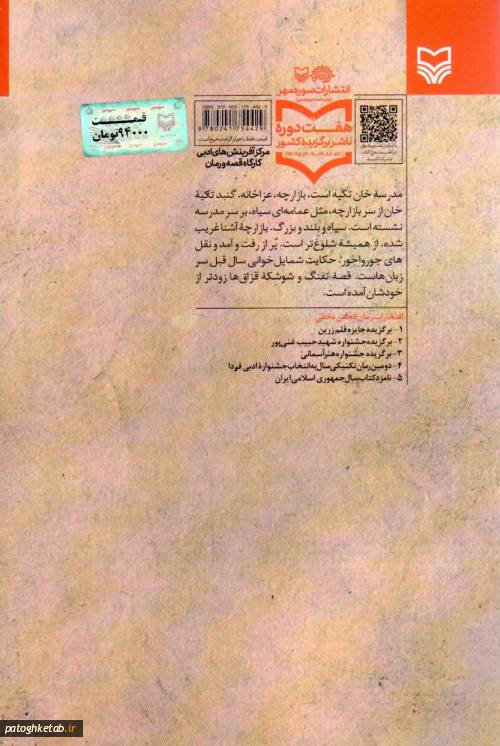 انتشارات سوره مهر
هفت دوره
ناشر برگزیده کشور
قیمت
۹۴۰۰۰ تومان
9780241754429
مرکز آفرینش‌های ادبی
کارگاه قصه و رمان
مدرسهٔ خان تکیه است، بازارچه، عزاخانه. گنبد تکیهٔ
خان از سر بازارچه، مثل عمامه‌ای سیاه، بر سر مدرسه
نشسته است. سیاه و بلند و بزرگ. بازارچهٔ آشنا غریب
شده، از همیشه شلوغ‌تر است. پُر از رفت و آمد و نقل
های جورواجور: حکایت شمایل‌خوانی سال قبل سر
زبان‌هاست. قصهٔ تفنگ و شوشکهٔ قزاق‌ها زودتر از
خودشان آمده است.
افتخارات رمان انجمن مخفی
۱- برگزیده جایزه قلم زرین
۲- برگزیده جشنواره شهید حبیب غنی‌پور
۳- برگزیده جشنواره هنر آسمانی
۴- دومین رمان تکنیکی سال به انتخاب جشنوارهٔ ادبی فردا
۵- نامزد کتاب سال جمهوری اسلامی ایران
patoghketab.ir